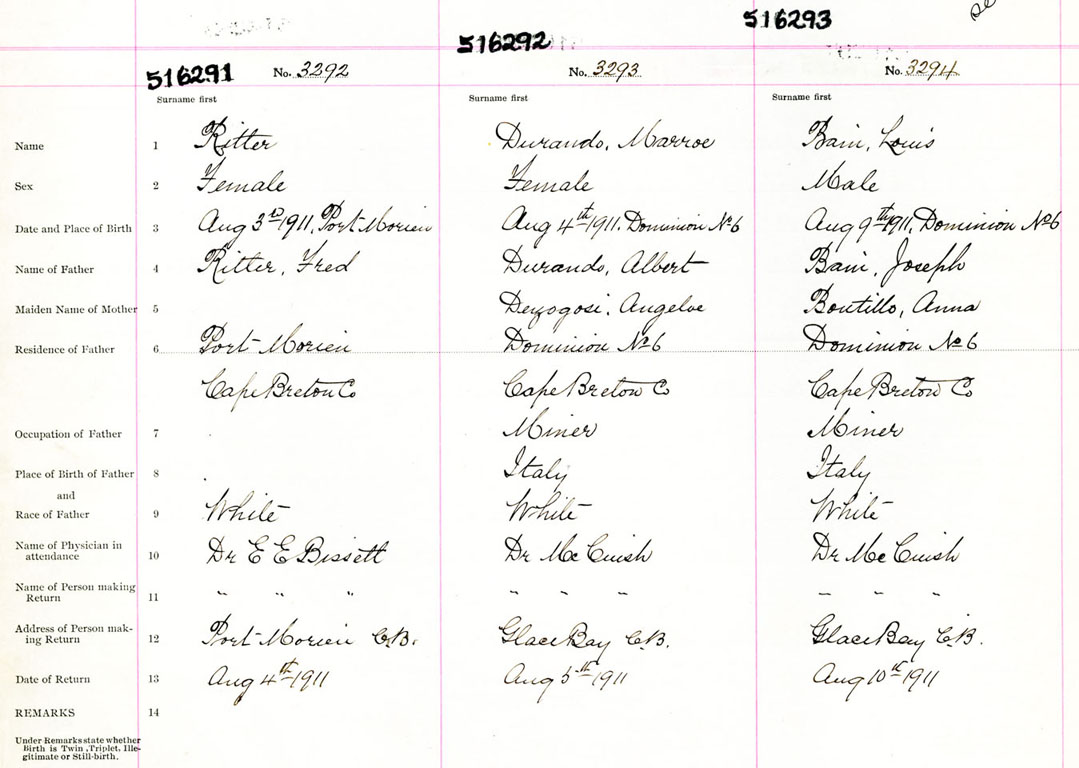 516291 No. 3292
516292 No. 3293
516293 No. 3294
Surname first Surname first Surname first
Name 1 Ritter Durando, Marroe Bain, Louis
Sex 2 Female Female Male
Date and Place of Birth 3 Aug 3rd 1911, Port Morien Aug 4th 1911. Dominion No 6 Aug 9th 1911, Dominion No 6
Name of Father 4 Ritter, Fred Durando, Albert Bain, Joseph
Maiden Name of Mother 5 Angelve Boutillo, Anna
Residence of Father 6 Port Morien Dominion No 6 Dominion No 6
Cape Breton Co Cape Breton Co Cape Breton Co
Occupation of Father 7 Miner Miner
Place of Birth of Father 8 Italy Italy
and
Race of Father 9 White White White
Name of Physician in
attendance 10 Dr E E Bissett Dr McCuish Dr McCuish
Name of Person making
Return 11 " " " " " " " " "
Address of Person mak-
ing Return 12 Port Morien C.B. Glace Bay C.B. Glace Bay C.B.
Date of Return 13 Aug 4th 1911 Aug 5th 1911 Aug 10th 1911
REMARKS 14
Under Remarks state whether
Birth is Twin, Triplet, Ille-
gitimate or Still-birth.